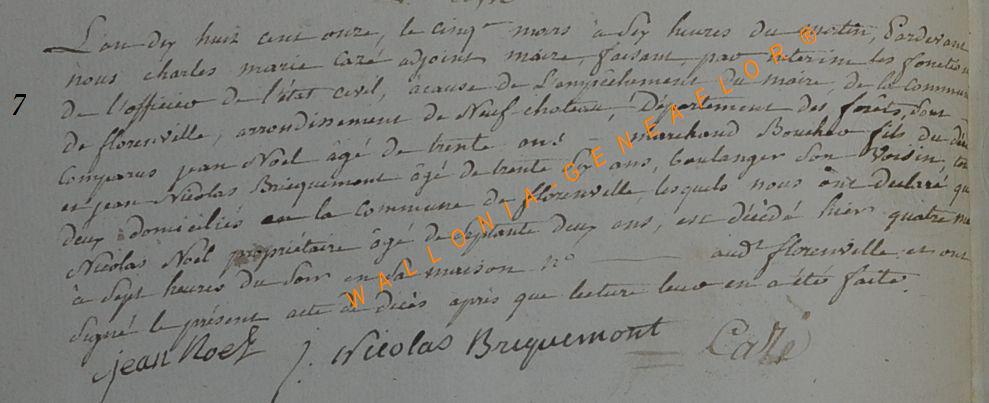 7
L'an dix huit cent onze, le cinq mars à dix heures du matin, Pardevant
nous charles marie Cazé adjoint maire, faisant par interim les fonctions
de l'officier de l'état civil, àcause de l'empêchement du maire, de la commune
de florenville, arrondissement de Neuf choteau, Département des forets, sont
comparus jean Noël âgé de trente ans, marchand Boucher fils du décédé
et jean Nicolas Bricquemont âgé de trente six ans, boulanger son voisin, tous
deux domiciliés en la commune de florenville, lesquels nous ont declaré que
Nicolas Noël propriétaire âgé de septante deux ans, est décédé hier quatre mars
à sept heures du soir en sa maison n° audt florenville et ont
signé le présent acte de décès après que lecture leur en a été faite
jean Noel J. Nicolas Bricquemont Cazé
WALLONIA-GENEAFLOR ®